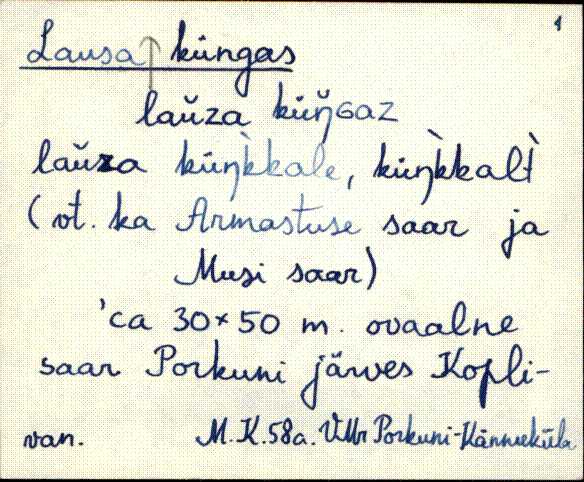 1
Lausa küngas
laŭza küŋ̆Gaz
laŭza küŋ̀kkale, küŋ̀kkalt̀
(vt. ka Armastuse saar ja
Musi saar)
'ca 30×50 m. ovaalne
saar Porkuni järves Kopli-
van. M.K.58a. VMr Porkuni-Kännuküla